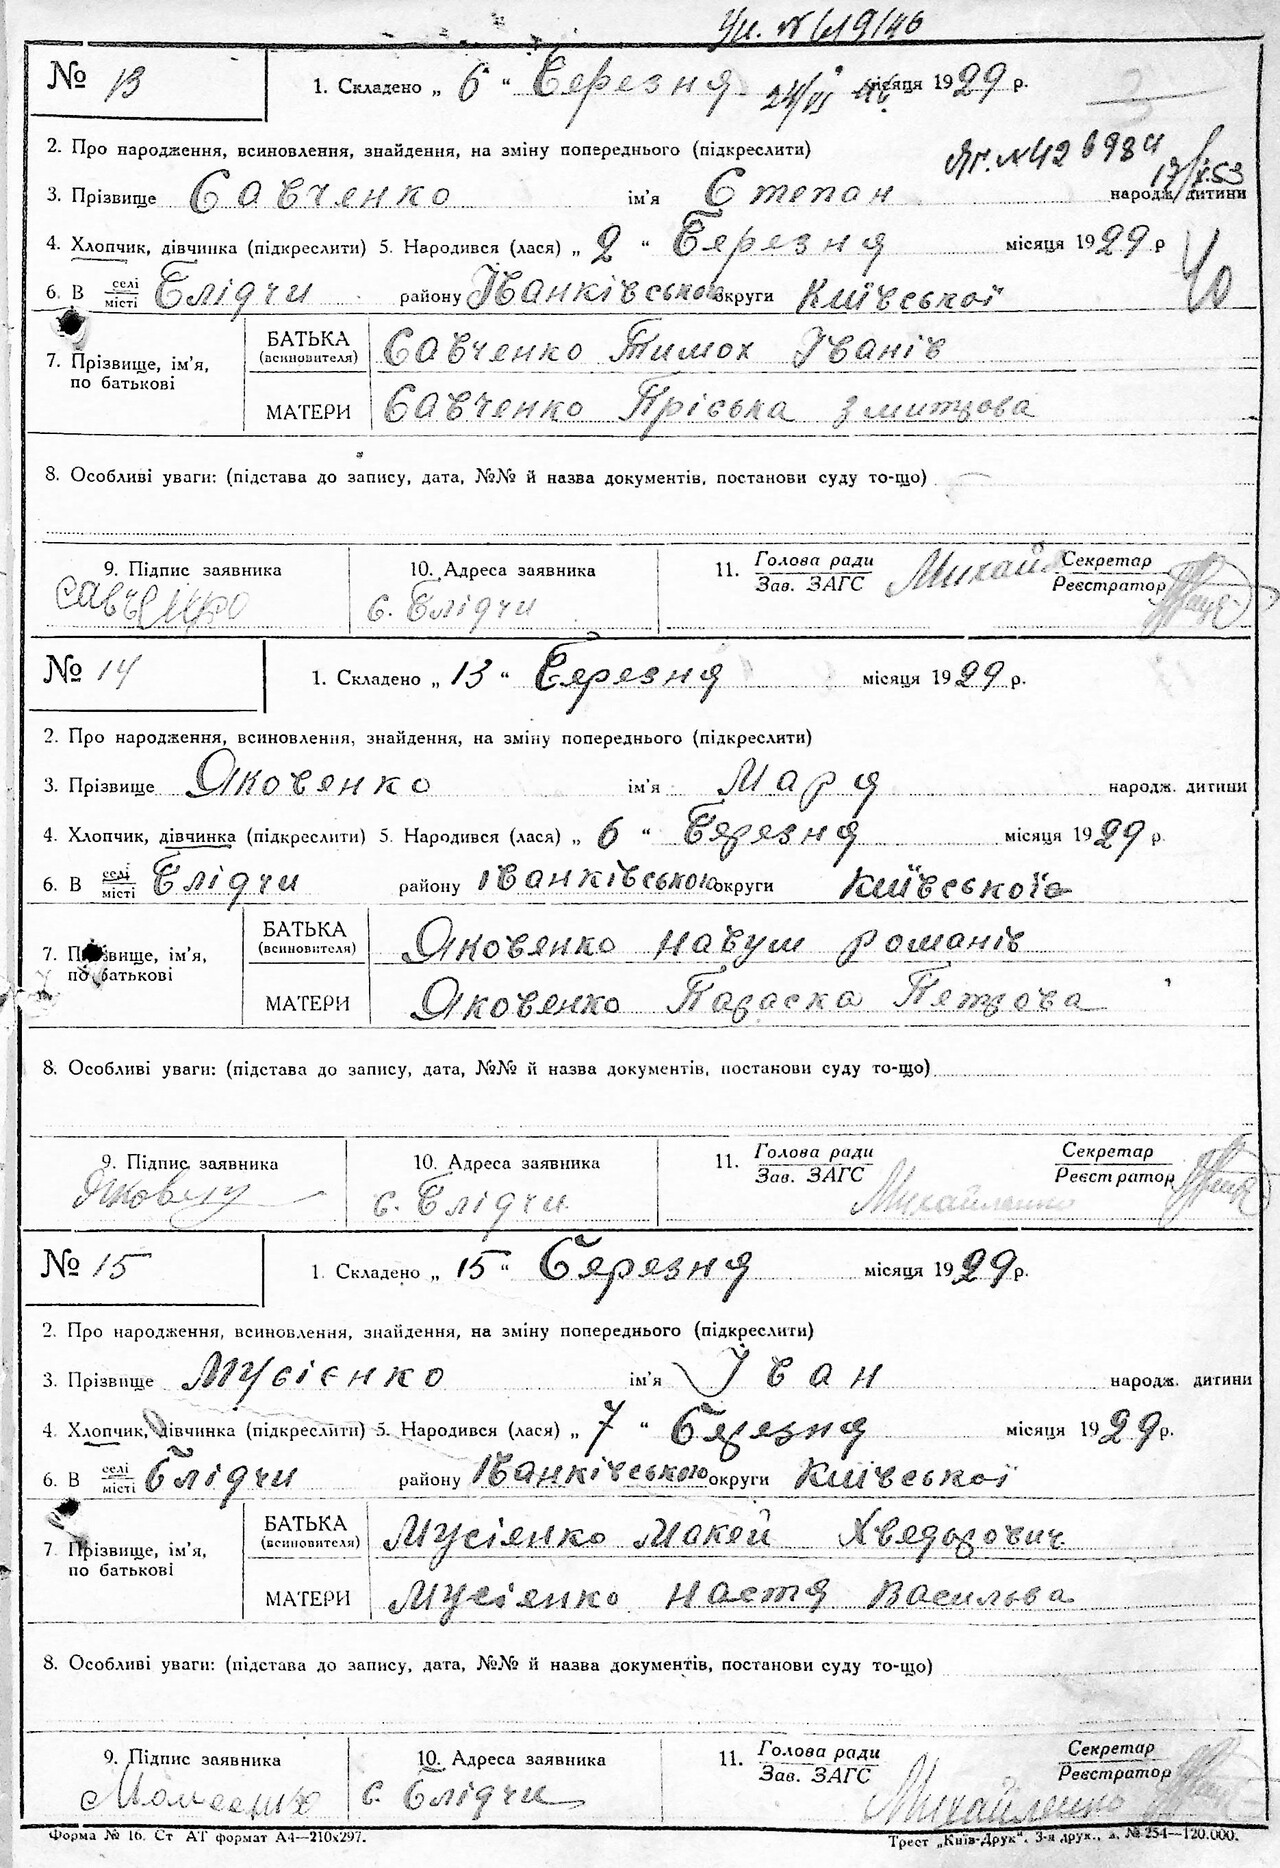 Ук. № 619/46
№ 13
1. Складено „ 6 “ Березня 24/VI 46 місяця 1929 р.
2. Про народження, всиновлення, знайдення, на зміну попереднього (підкреслити)
Яг. № 426984
17/X.53
3. Прізвище Савченко ім'я Степан народж. дитини
4. Хлопчик, дівчинка (підкреслити) 5. Народився (лася) „ 2 “ Березня місяця 1929 р
6. В селі/місті Блідчи району Іванківською округи Київської
7. Прізвище, ім'я, по батькові
БАТЬКА (всиновителя) Савченко Тимох Іванів
МАТЕРИ Савченко Пріська Змитрова
8. Особливі уваги: (підстава до запису, дата, №№ й назва документів, постанови суду то-що)
9. Підпис заявника 10. Адреса заявника 11. Голова ради/Зав. ЗАГС Секретар/Реєстратор
Савченко с. Блідчи Михайл
№ 14
1. Складено „ 13 “ Березня місяця 1929 р.
2. Про народження, всиновлення, знайдення, на зміну попереднього (підкреслити)
3. Прізвище Яковенко ім'я Маря народж. дитини
4. Хлопчик, дівчинка (підкреслити) 5. Народився (лася) „ 6 “ Березня місяця 1929 р.
6. В селі/місті Блідчи району Іванківською округи Київської
7. Прізвище, ім'я, по батькові
БАТЬКА (всиновителя) Яковянко Навум Романів
МАТЕРИ Яковенко Параска Петрова
8. Особливі уваги: (підстава до запису, дата, №№ й назва документів, постанови суду то-що)
9. Підпис заявника 10. Адреса заявника 11. Голова ради/Зав. ЗАГС Секретар/Реєстратор
с. Блідчи Михайленко
№ 15
1. Складено „ 15 “ Березня місяця 1929 р.
2. Про народження, всиновлення, знайдення, на зміну попереднього (підкреслити)
3. Прізвище Мусієнко ім'я Іван народж. дитини
4. Хлопчик, дівчинка (підкреслити) 5. Народився (лася) „ 7 “ Березня місяця 1929 р.
6. В селі/місті Блідчи району Іванківською округи Київської
7. Прізвище, ім'я, по батькові
БАТЬКА (всиновителя) Мусіянко Макей Хведорович
МАТЕРИ Мусіянко Настя Васильва
8. Особливі уваги: (підстава до запису, дата, №№ й назва документів, постанови суду то-що)
9. Підпис заявника 10. Адреса заявника 11. Голова ради/Зав. ЗАГС Секретар/Реєстратор
с. Блідчи Михайленко
Форма № 16. Ст АТ формат А4—210х297. Трест „Київ-Друк“. 3-я друк., з. № 254—120.000.